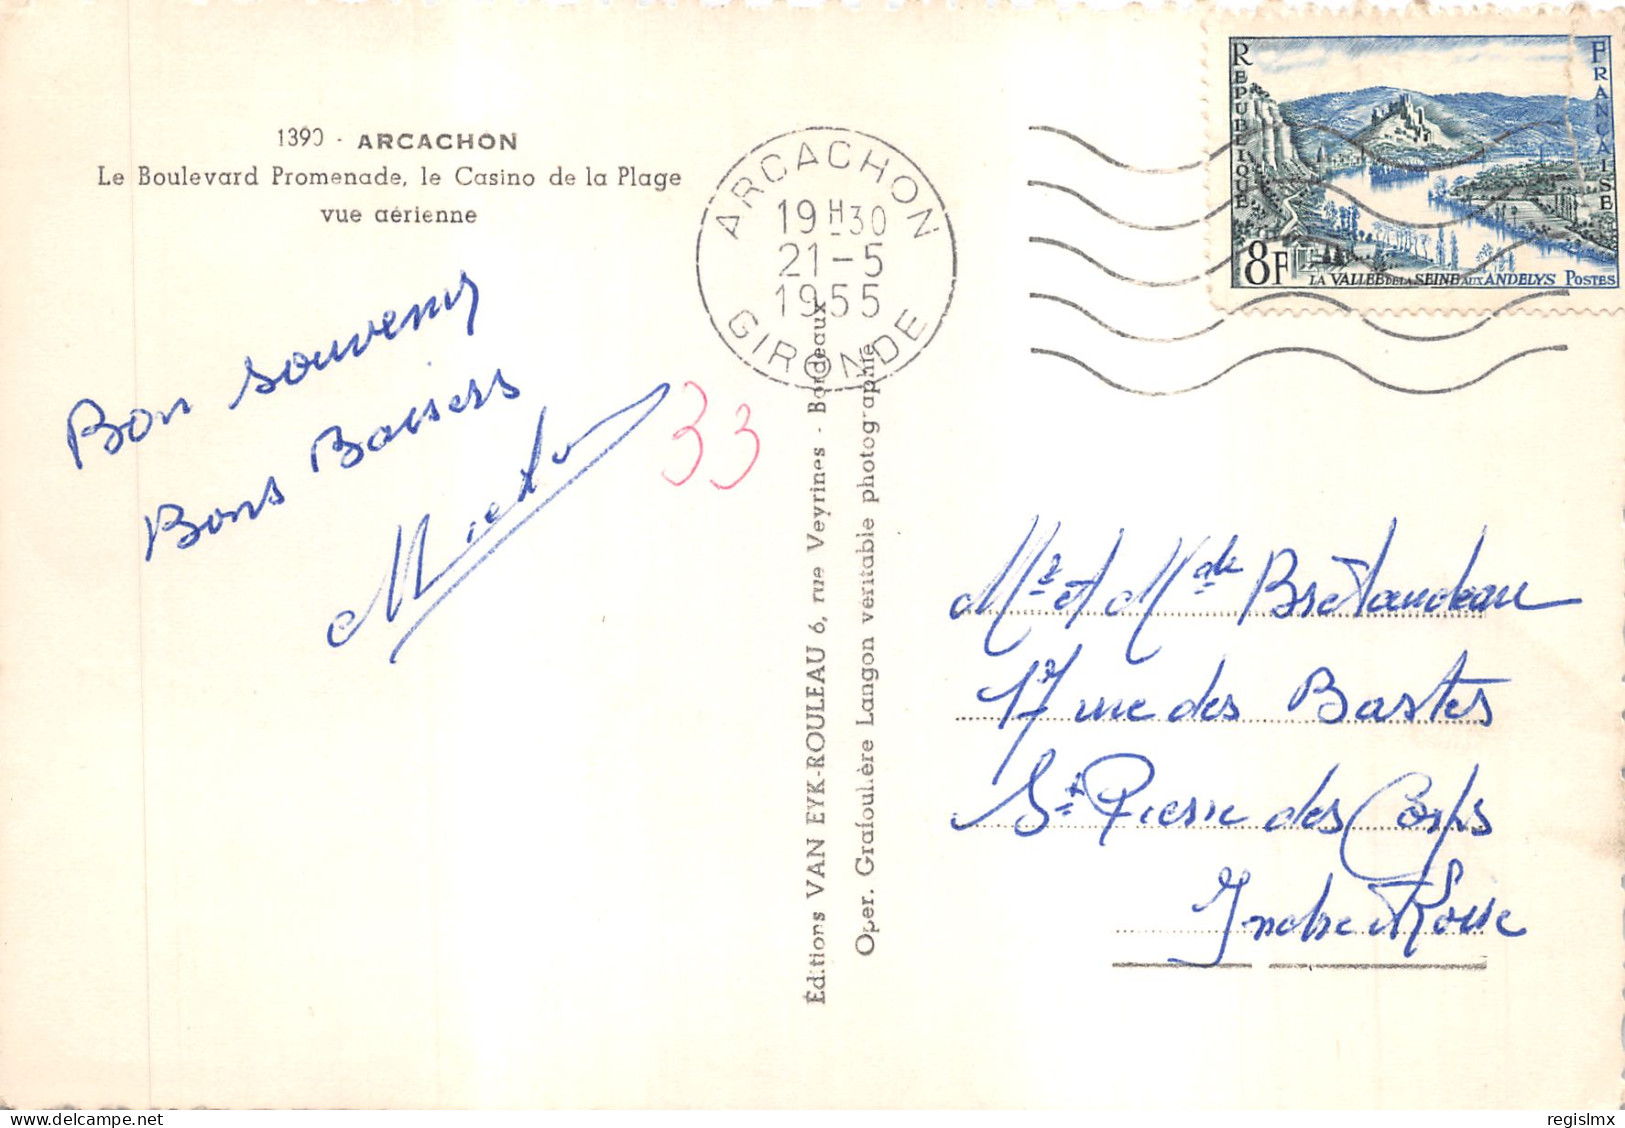 1390 - ARCACHON
Le Boulevard Promenade, le Casino de la Plage
vue aérienne
Bon souvenir
Bons Baisers
33
ARCACHON
19H30
21-5
1955
GIRONDE
Éditions VAN EYK-ROULEAU 6, rue Veyrines - Bordeaux
Oper. Grafouilère Langon veritable photographie
REPUBLIQUE FRANÇAISE
8F LA VALLÉE DE LA SEINE AUX ANDELYS POSTES
Mr et Mde Bretaudeau
17 rue des Bastes
St Pierre des Corps
Indre et Loire
regislmx